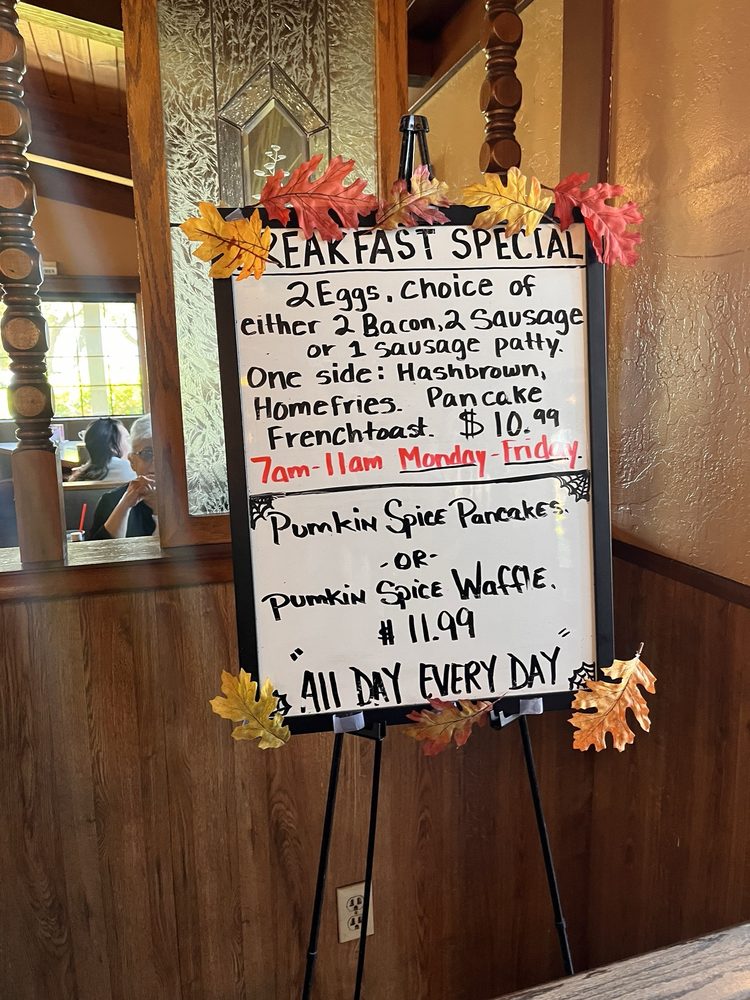 BREAKFAST SPECIAL
2 Eggs, choice of
either 2 Bacon, 2 Sausage
or 1 sausage patty.
One side: Hashbrown,
Homefries. Pancake
Frenchtoast. $10.99
7am-11am Monday-Friday.
Pumkin Spice Pancakes.
-OR-
Pumkin Spice Waffle.
$11.99
"All DAY EVERY DAY"